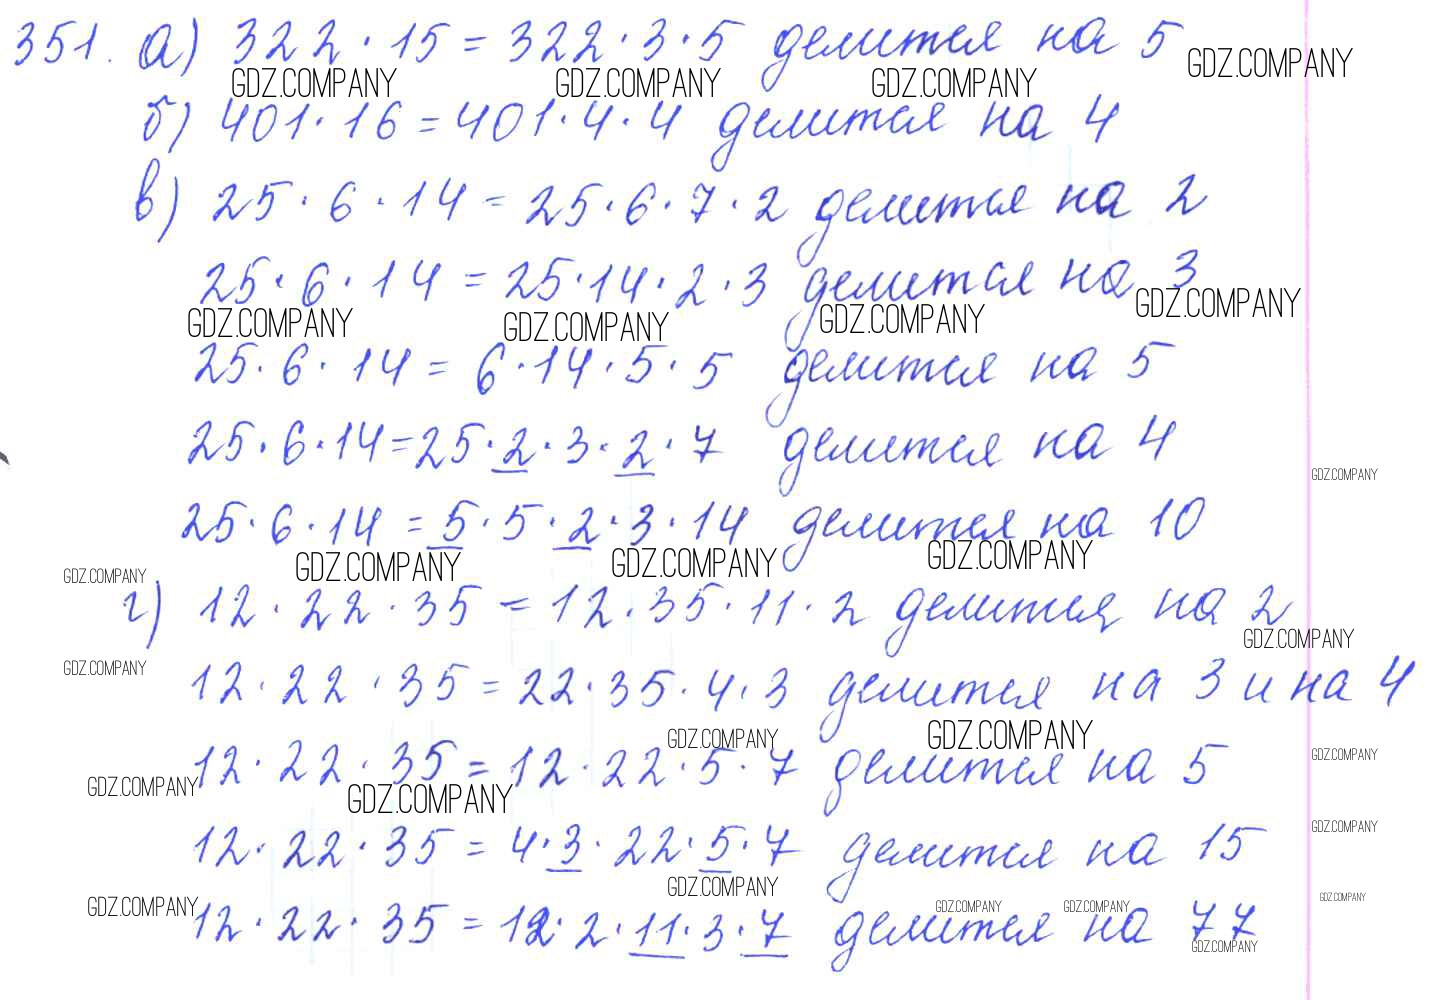 351. а) 322 · 15 = 322 · 3 · 5 делится на 5
GDZ.COMPANY GDZ.COMPANY GDZ.COMPANY GDZ.COMPANY
б) 401 · 16 = 401 · 4 · 4 делится на 4
в) 25 · 6 · 14 = 25 · 6 · 7 · 2 делится на 2
25 · 6 · 14 = 25 · 14 · 2 · 3 делится на 3
GDZ.COMPANY GDZ.COMPANY GDZ.COMPANY GDZ.COMPANY
25 · 6 · 14 = 6 · 14 · 5 · 5 делится на 5
25 · 6 · 14 = 25 · 2 · 3 · 2 · 7 делится на 4
GDZ.COMPANY
25 · 6 · 14 = 5 · 5 · 2 · 3 · 14 делится на 10
GDZ.COMPANY GDZ.COMPANY GDZ.COMPANY GDZ.COMPANY
г) 12 · 22 · 35 = 12 · 35 · 11 · 2 делится на 2
GDZ.COMPANY
GDZ.COMPANY
12 · 22 · 35 = 22 · 35 · 4 · 3 делится на 3 и на 4
GDZ.COMPANY GDZ.COMPANY GDZ.COMPANY
12 · 22 · 35 = 12 · 22 · 5 · 7 делится на 5
GDZ.COMPANY GDZ.COMPANY GDZ.COMPANY
12 · 22 · 35 = 4 · 3 · 22 · 5 · 7 делится на 15
GDZ.COMPANY
GDZ.COMPANY GDZ.COMPANY GDZ.COMPANY GDZ.COMPANY
12 · 22 · 35 = 12 · 2 · 11 · 3 · 7 делится на 77
GDZ.COMPANY